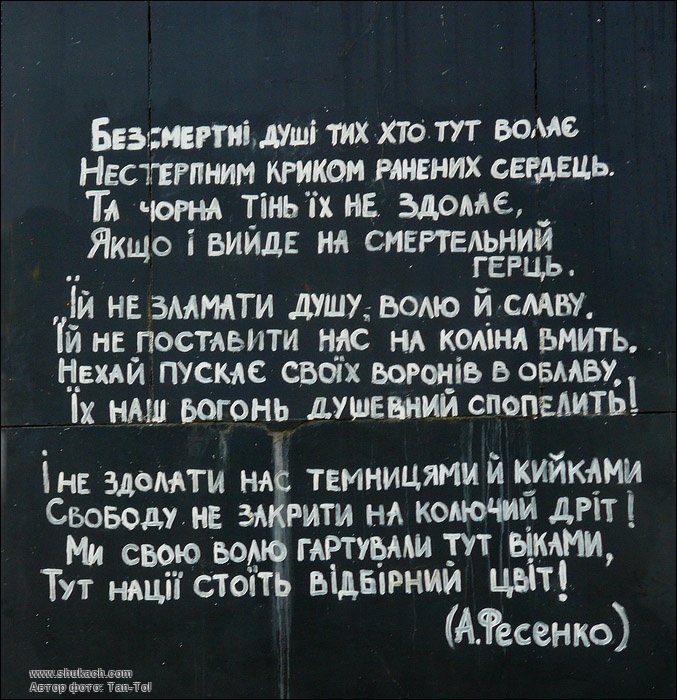 Безсмертні душі тих хто тут волає
Нестерпним криком ранених сердець.
Та чорна тінь їх не здолає,
Якщо і вийде на смертельний
герць.
Їй не зламати душу, волю й славу.
Їй не поставити нас на коліна вмить.
Нехай пускає своїх воронів в облаву,
Їх наш вогонь душевний спопелить!
І не здолати нас темницями й кийками
Свободу не закрити на колючий дріт!
Ми свою волю гартували тут віками,
Тут нації стоїть відбірний цвіт!
(А.Фесенко)
www.shukach.com
Автор фото: Tan-Tol